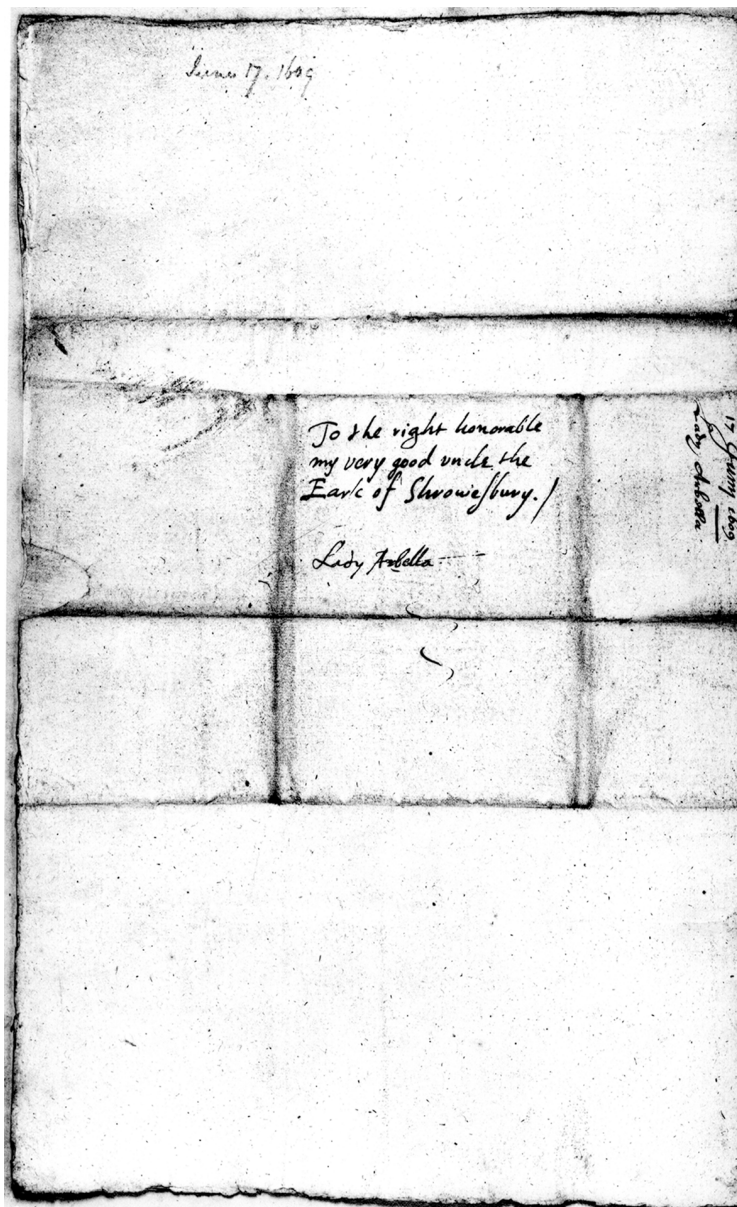 June 17. 1609
To the right honorable
my very good vncle the
Earle of Shrowesbury./
Lady Arbella
17 1609
Lady Arbella